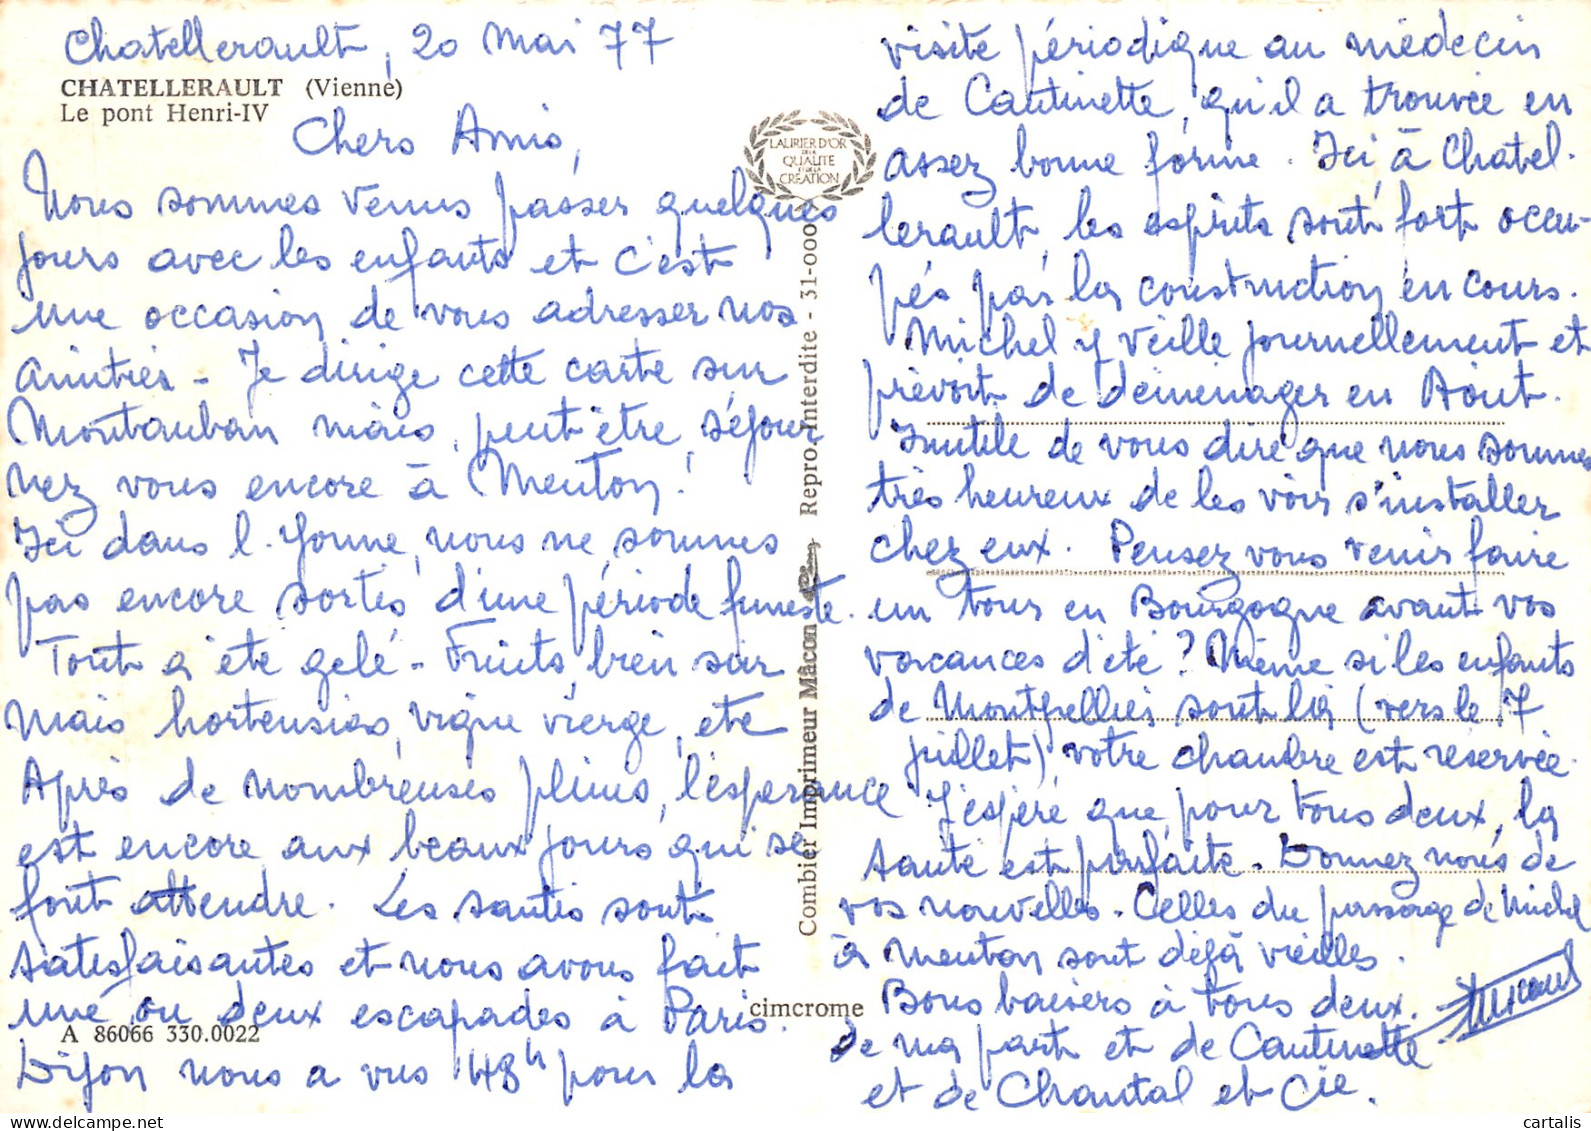 Chatellerault, 20 Mai 77
CHATELLERAULT (Vienne)
Le pont Henri-IV
Chers Amis,
Nous sommes venus passer quelques
jours avec les enfants et c'est
une occasion de vous adresser nos
amitiés - Je dirige cette carte sur
Montauban mais, peut être, séjour
nez vous encore à Menton!
Ici dans l'Yonne, nous ne sommes
pas encore sortis d'une période funeste.
Tout a été gelé - Fruits, bien sûr
mais hortensias, vigne vierge, etc
Après de nombreuses pluies, l'espérance
est encore aux beaux jours qui se
font attendre. Les santés sont
satisfaisantes et nous avons fait
une ou deux escapades à Paris.
A 86066 330.0022
Dijon nous a vus 48h pour la
LAURIER D'OR
DE LA
QUALITE
ET DE LA
CREATION
Combier Imprimeur Mâcon Repro. Interdite - 31-000
cimcrome
visite périodique au médecin
de Cautinette, qu'il a trouvée en
assez bonne forme. Ici à Chatel-
lerault, les esprits sont fort occu-
pés par la construction en cours.
Michel y veille journellement et
prévoit de déménager en Août.
Inutile de vous dire que nous sommes
très heureux de les voir s'installer
chez eux. Pensez vous venir faire
un tour en Bourgogne avant vos
vacances d'été? Même si les enfants
de Montpellier sont là (vers le 7
juillet) votre chambre est réservée.
J'espère que, pour tous deux, la
santé est parfaite. Donnez nous de
vos nouvelles. Celles du passage de Michel
à Menton sont déjà vieilles.
Bons baisers à tous deux.
de ma part et de Cautinette
et de Chantal et Cie.